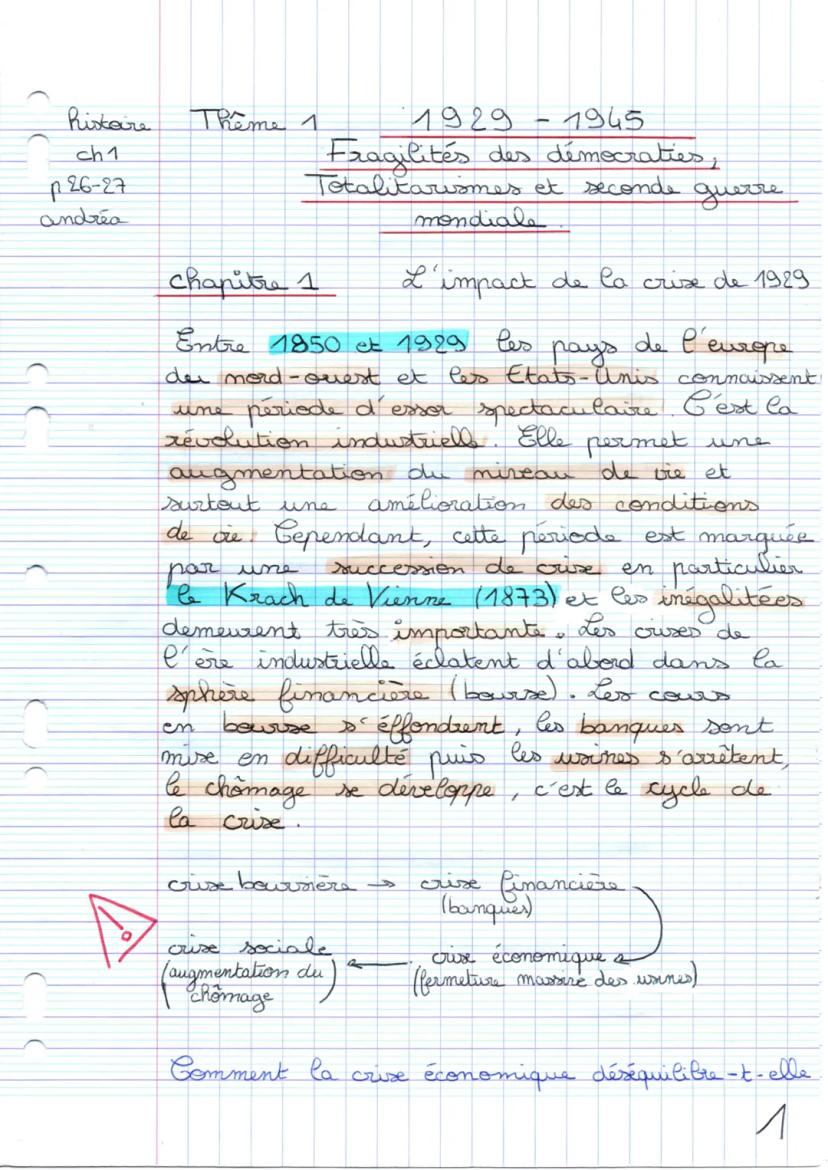 histoire
ch1
p 26-27
andréa
Thème 1
1929 - 1945
Fragilités des démocraties,
Totalitarismes et seconde guerre
mondiale.
chapitre 1 L'impact de la crise de 1929
Entre 1850 et 1929 les pays de l'europe
du nord-ouest et les Etats-Unis connaissent
une période d'essor spectaculaire. C'est la
révolution industrielle. Elle permet une
augmentation du niveau de vie et
surtout une amélioration des conditions
de vie. Cependant, cette période est marquée
par une succession de crise en particulier
le Krach de Vienne (1873) et les inégalitées
demeurent très importante. Les crises de
l'ère industrielle éclatent d'abord dans la
sphère financière (bourse). Les cours
en bourse s'éffondrent, les banques sont
mise en difficulté puis les usines s'arrêtent,
le chômage se développe, c'est le cycle de
la crise.
crise boursière → crise financière
(banques)
crise sociale ← crise économique
(augmentation du (fermeture massive des usines)
chômage)
Comment la crise économique déséquilibre-t-elle
1